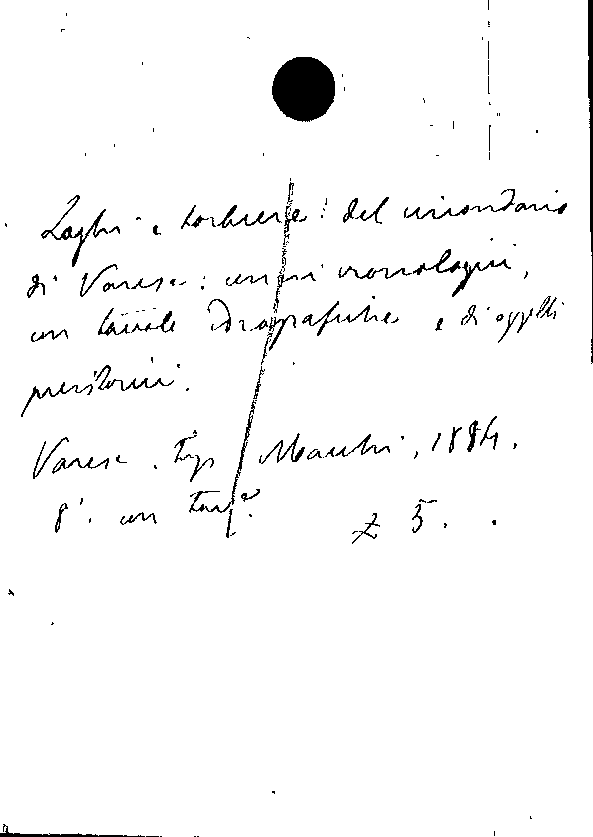 Laghi e torbiere del circondario
di Varese: cenni cronologici,
con tavole idrografiche e di oggetti
preistorici.
Varese. Tip Macchi, 1884.
8°. con tav.e
£ 5.